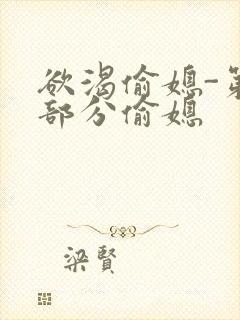 欲渴偷媳-第
部分偷媳
梁賢